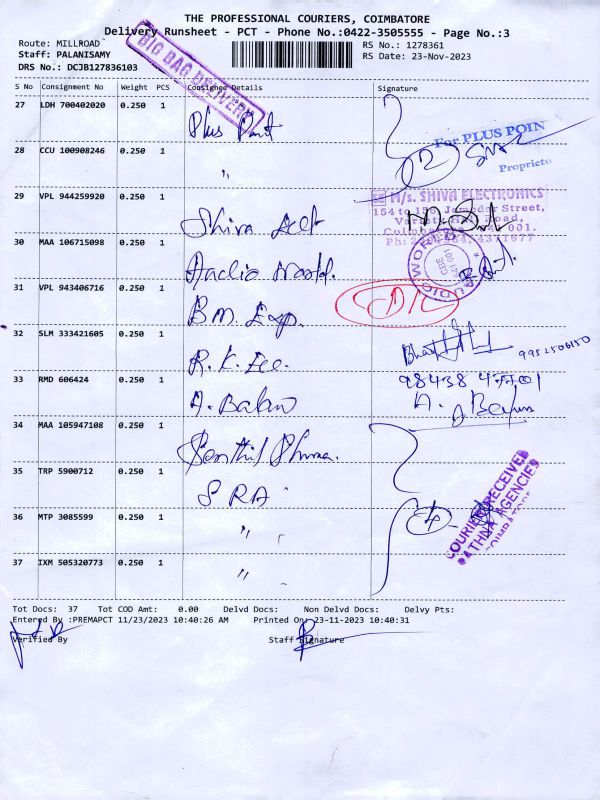 THE PROFESSIONAL COURIERS, COIMBATORE
Delivery Runsheet - PCT - Phone No.:0422-3505555 - Page No.:3
Route: MILLROAD
Staff: PALANISAMY
DRS No.: DCJB127836103
RS No.: 1278361
RS Date: 23-Nov-2023
BIG BAG DELIVERY
S No Consignment No Weight PCS Consignee Details Signature
27 LDH 700402020 0.250 1 Plus Point
For PLUS POIN
28 CCU 100908246 0.250 1 "
2
Proprieto
29 VPL 944259920 0.250 1 Shiva
M/s. SHIVA ELECTRONICS
154 to 156, Jamedar Street,
Road,
001.
30 MAA 106715098 0.250 1
AUDIO WORLD
CBE
641 001
31 VPL 943406716 0.250 1 B M. Exp.
D/L
32 SLM 333421605 0.250 1 R. K. Ele.
9952506150
33 RMD 606424 0.250 1 A. Balan
98438
34 MAA 105947108 0.250 1 Senthil
35 TRP 5900712 0.250 1 S RA
COURIER RECEIVED
RATHNA AGENCIES
COIMBATORE
36 MTP 3085599 0.250 1 "
4
37 IXM 505320773 0.250 1 "
Tot Docs: 37 Tot COD Amt: 0.00 Delvd Docs: Non Delvd Docs: Delvy Pts:
Entered By :PREMAPCT 11/23/2023 10:40:26 AM Printed On: 23-11-2023 10:40:31
Verified By Staff Signature